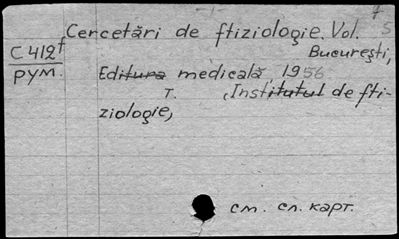 Cercetări de ftiziologie. Vol. 5
C412t
рум.
Bucureşti,
Editura medicală, 1956
T. , Institutul de fti-
ziologie,
см. сл. карт.